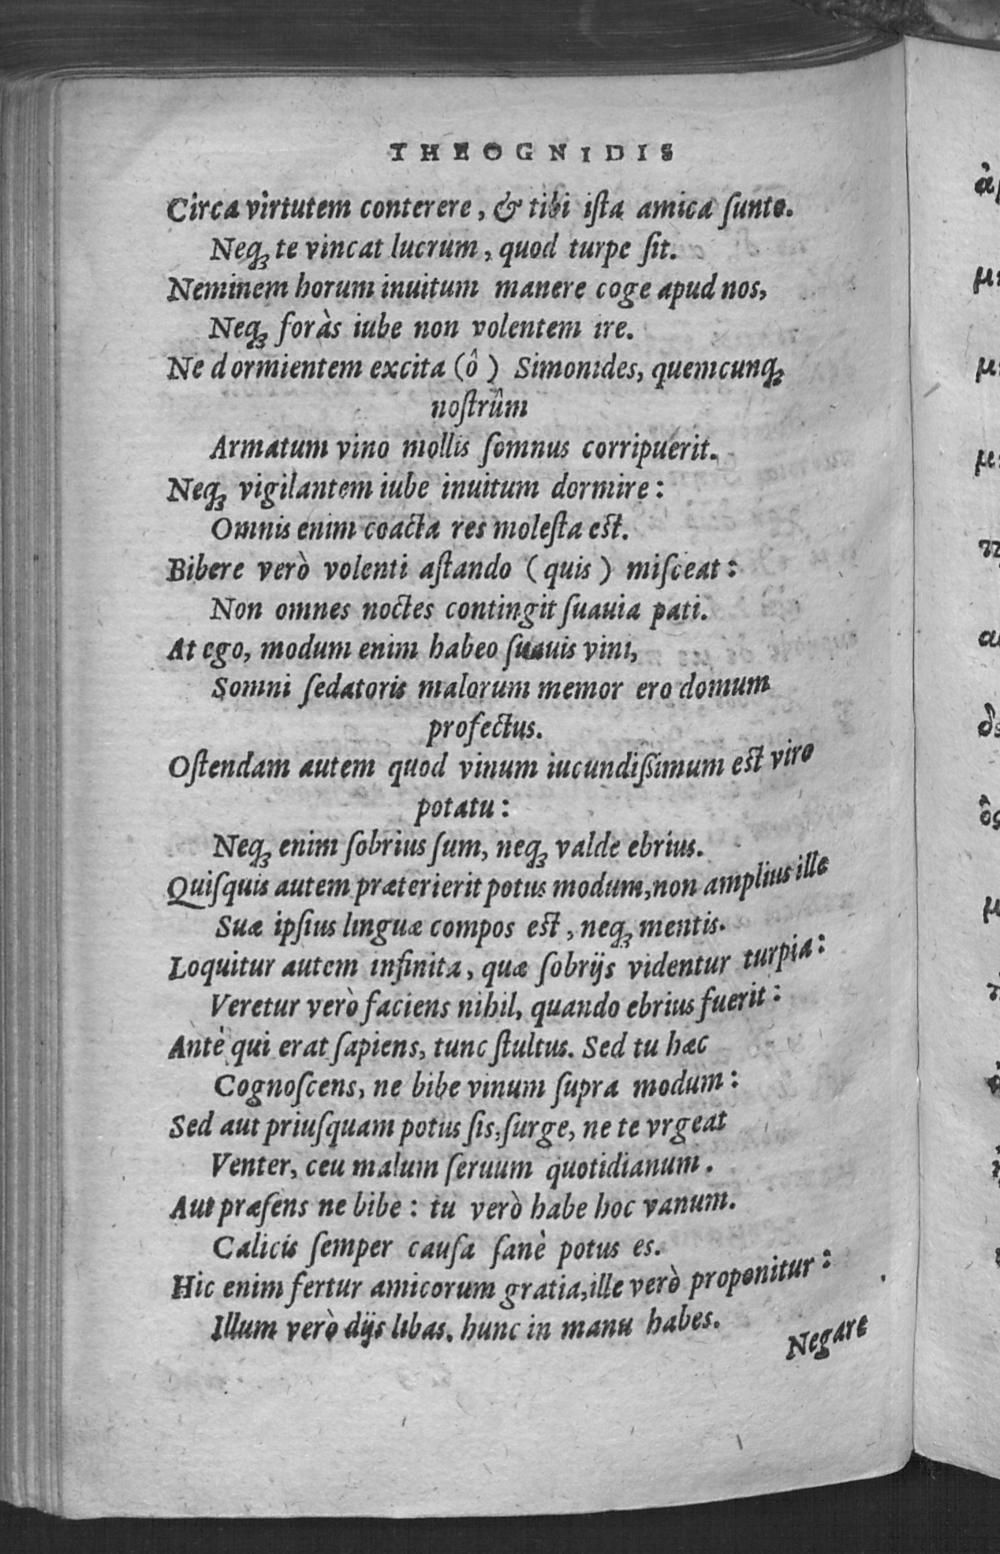 THEOGNIDIS
Circa virtutem conterere, & tibi iſta amica ſunto.
Neqꝫ te vincat lucrum, quod turpe ſit.
Neminem horum inuitum manere coge apud nos,
Neqꝫ foràs iube non volentem ire.
Ne dormientem excita (ô) Simonides, quemcunqꝫ
noſtrûm
Armatum vino mollis ſomnus corripuerit.
Neqꝫ vigilantem iube inuitum dormire:
Omnis enim coacta res moleſta eſt.
Bibere verò volenti aſtando (quis) miſceat:
Non omnes noctes contingit ſuauia pati.
At ego, modum enim habeo ſuauis vini,
Somni ſedatoris malorum memor ero domum
profectus.
Oſtendam autem quod vinum iucundiſſimum eſt viro
potatu:
Neqꝫ enim ſobrius ſum, neqꝫ valde ebrius.
Quiſquis autem præterierit potus modum, non amplius ille
Suæ ipſius linguæ compos eſt, neqꝫ mentis.
Loquitur autem infinita, quæ ſobrijs videntur turpia:
Veretur verò faciens nihil, quando ebrius fuerit:
Antè qui erat ſapiens, tunc ſtultus. Sed tu hæc
Cognoſcens, ne bibe vinum ſupra modum:
Sed aut priuſquam potus ſis, ſurge, ne te vrgeat
Venter, ceu malum ſeruum quotidianum.
Aut præſens ne bibe: tu verò habe hoc vanum.
Calicis ſemper cauſa ſanè potus es.
Hic enim fertur amicorum gratia, ille verò proponitur:
Illum verò dijs libas, hunc in manu habes.
Negare